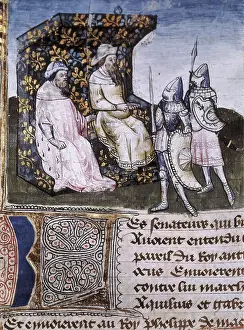 Es senateurs qui bi
Auoient entendu
pareil du Roy ant
ocus Enuoierent
contre luy march
Aquilius et grabe
Et enuoierent au Roy phelipe de mac